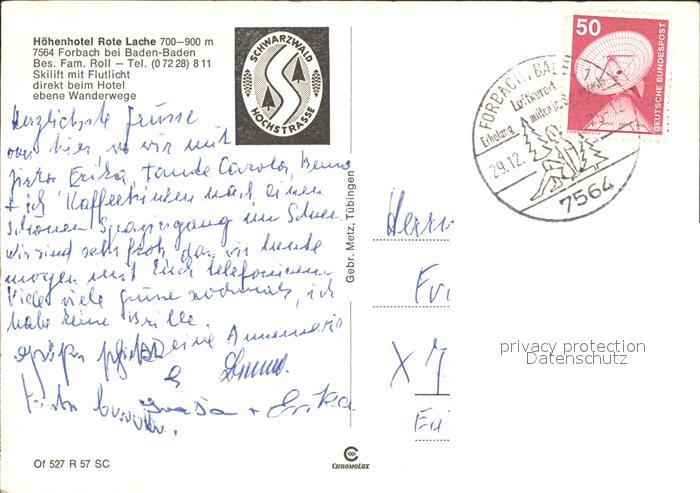 Höhenhotel Rote Lache 700–900 m
7564 Forbach bei Baden-Baden
Bes. Fam. Roll – Tel. (0 72 28) 8 11
Skilift mit Flutlicht
direkt beim Hotel
ebene Wanderwege
SCHWARZWALD
HOCHSTRASSE
50
DEUTSCHE BUNDESPOST
FORBACH, BA
Luftkurort
Erholung
29.12.
7564
Herzlichste Grüsse
von hier wo wir mit
Erika, Tante Carola,
+ ich Kaffeetrinken nach einem
schönen Spaziergang im Schnee
Wir sind sehr froh, dass wir heute
morgen mit Euch telefonieren
Viele viele Grüsse nochmals, ich
habe keine Brille.
Deine Annemarie
+ Erika
Gebr. Metz, Tübingen
Herrn
X 7
privacy protection
Datenschutz
Of 527 R 57 SC
CHROMOLUX